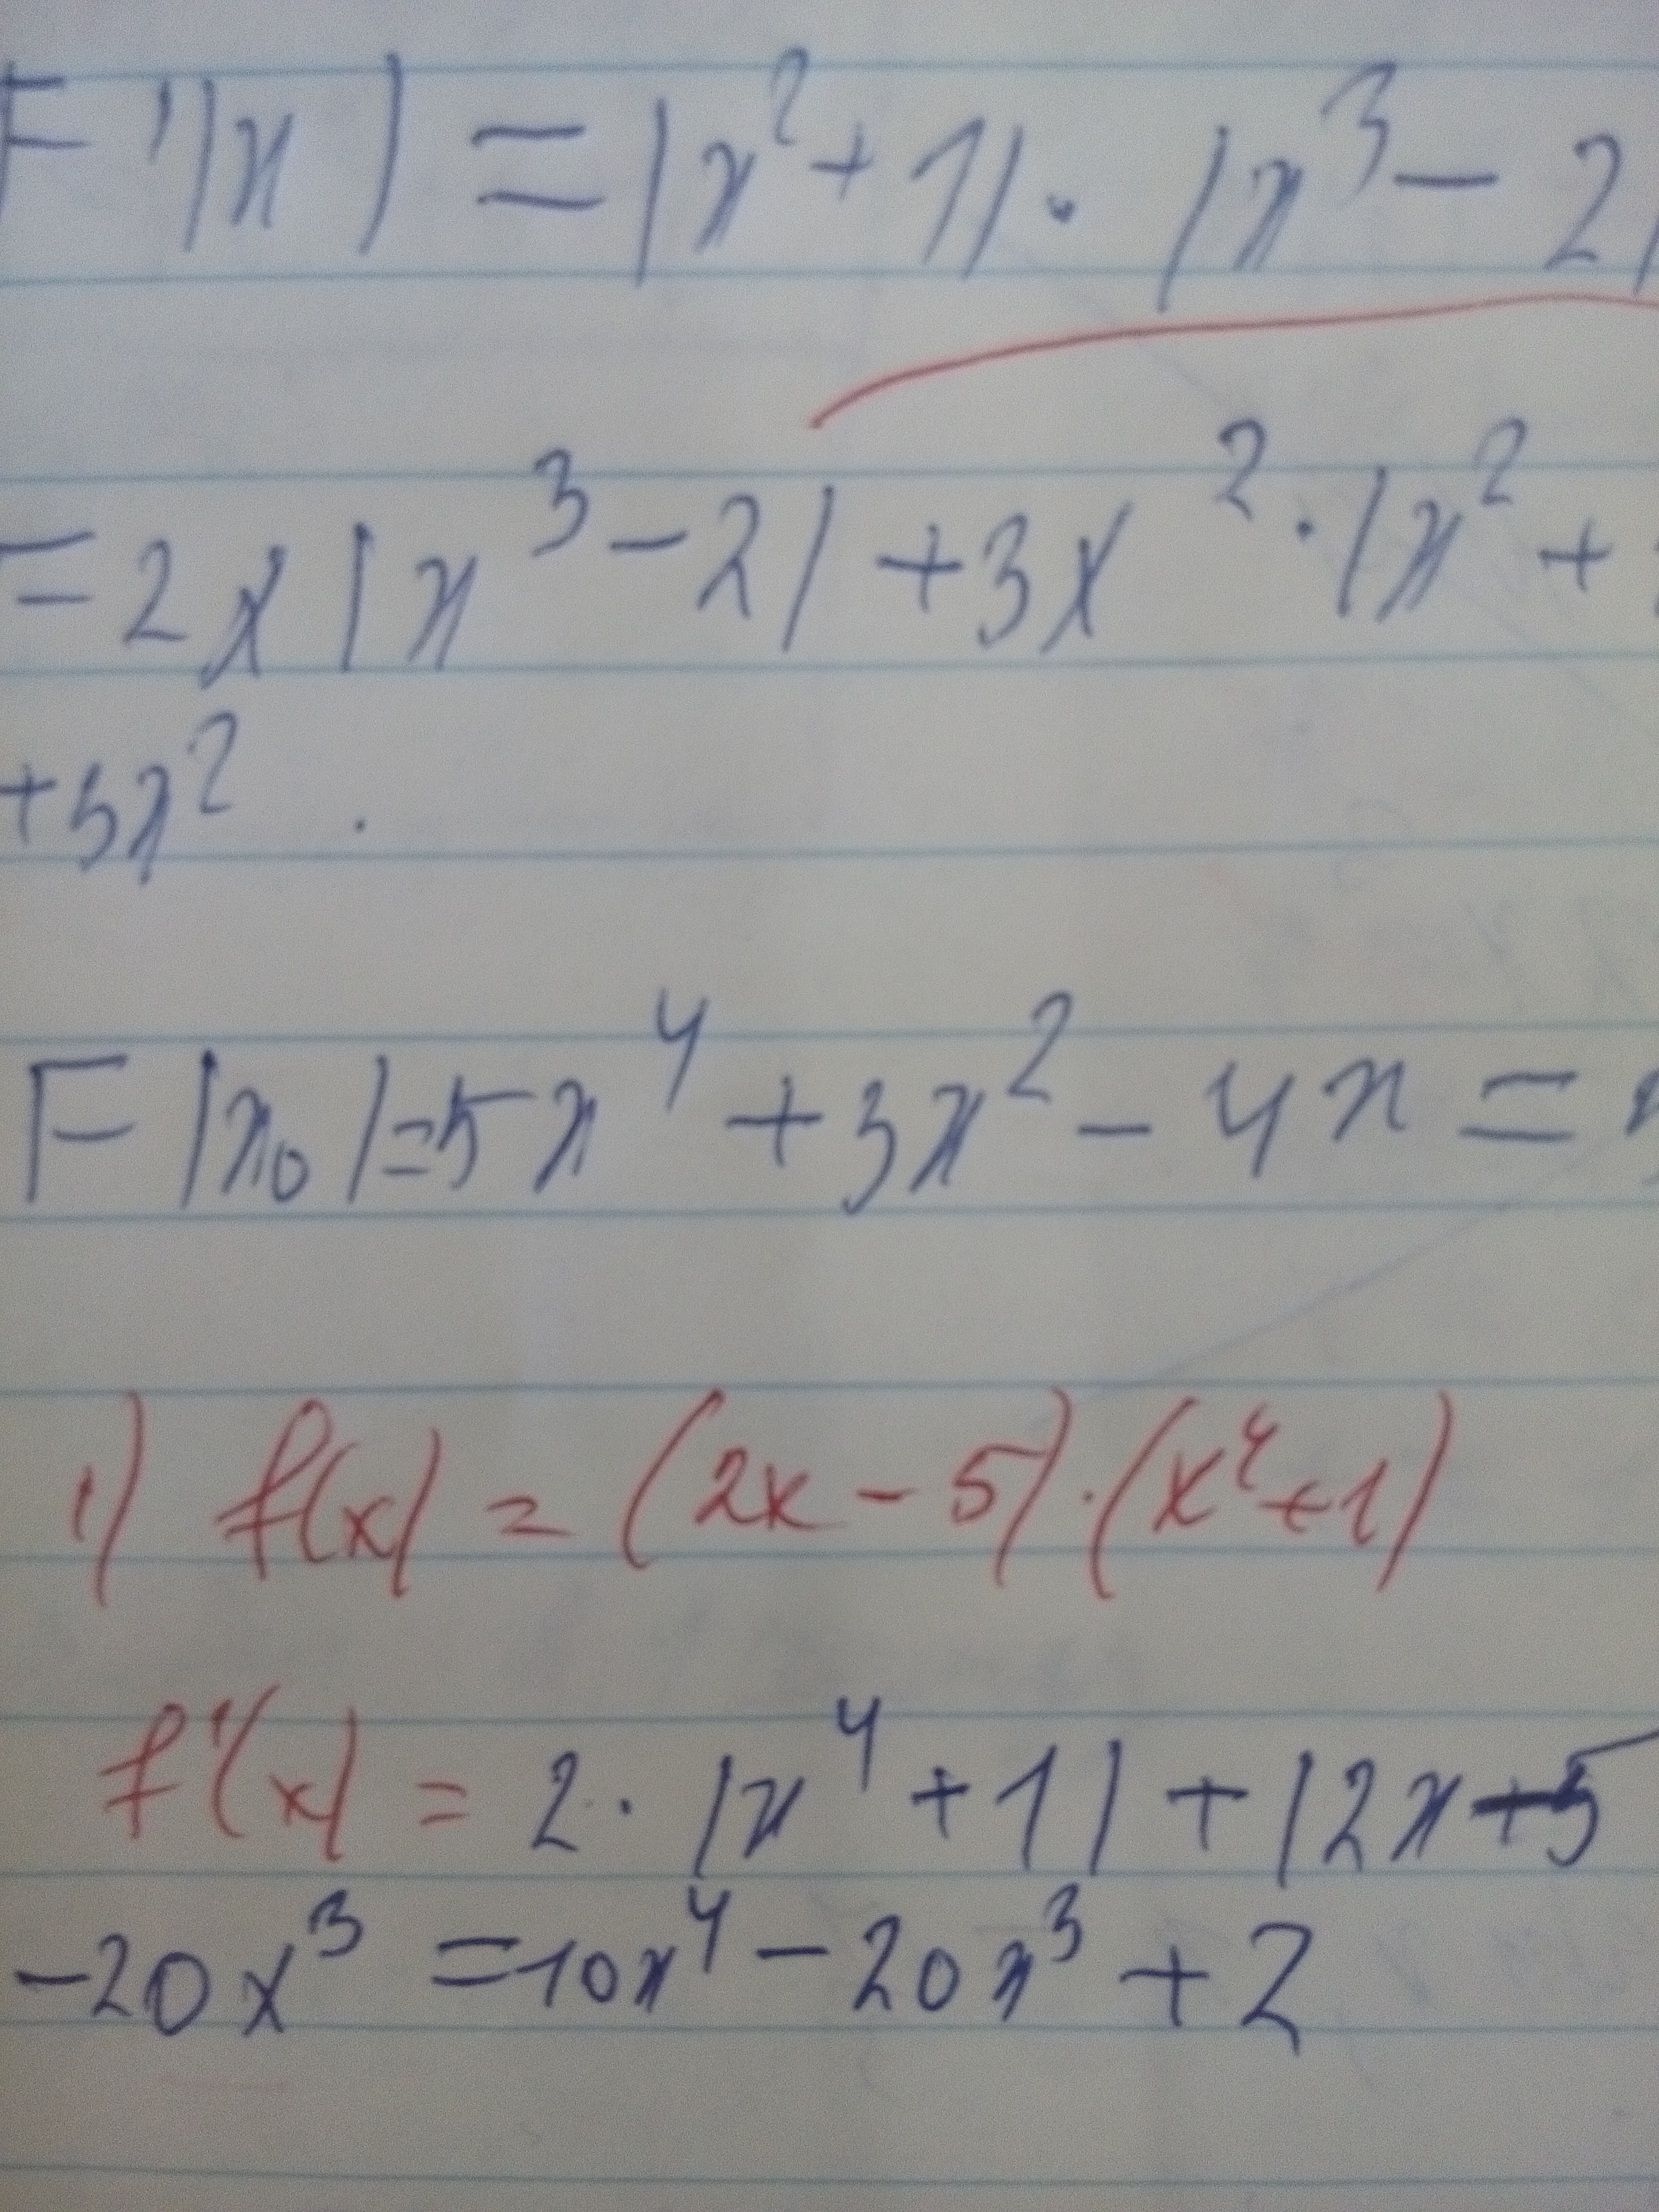 F'(x) = (x² + 1) · (x³ - 2)
= 2x(x³ - 2) + 3x² · (x² +
+3x² .
F(x₀) = 5x⁴ + 3x² - 4x =
1) f(x) = (2x - 5) · (x⁴ + 1)
f'(x) = 2 · (x⁴ + 1) + (2x - 5
-20x³ = 10x⁴ - 20x³ + 2